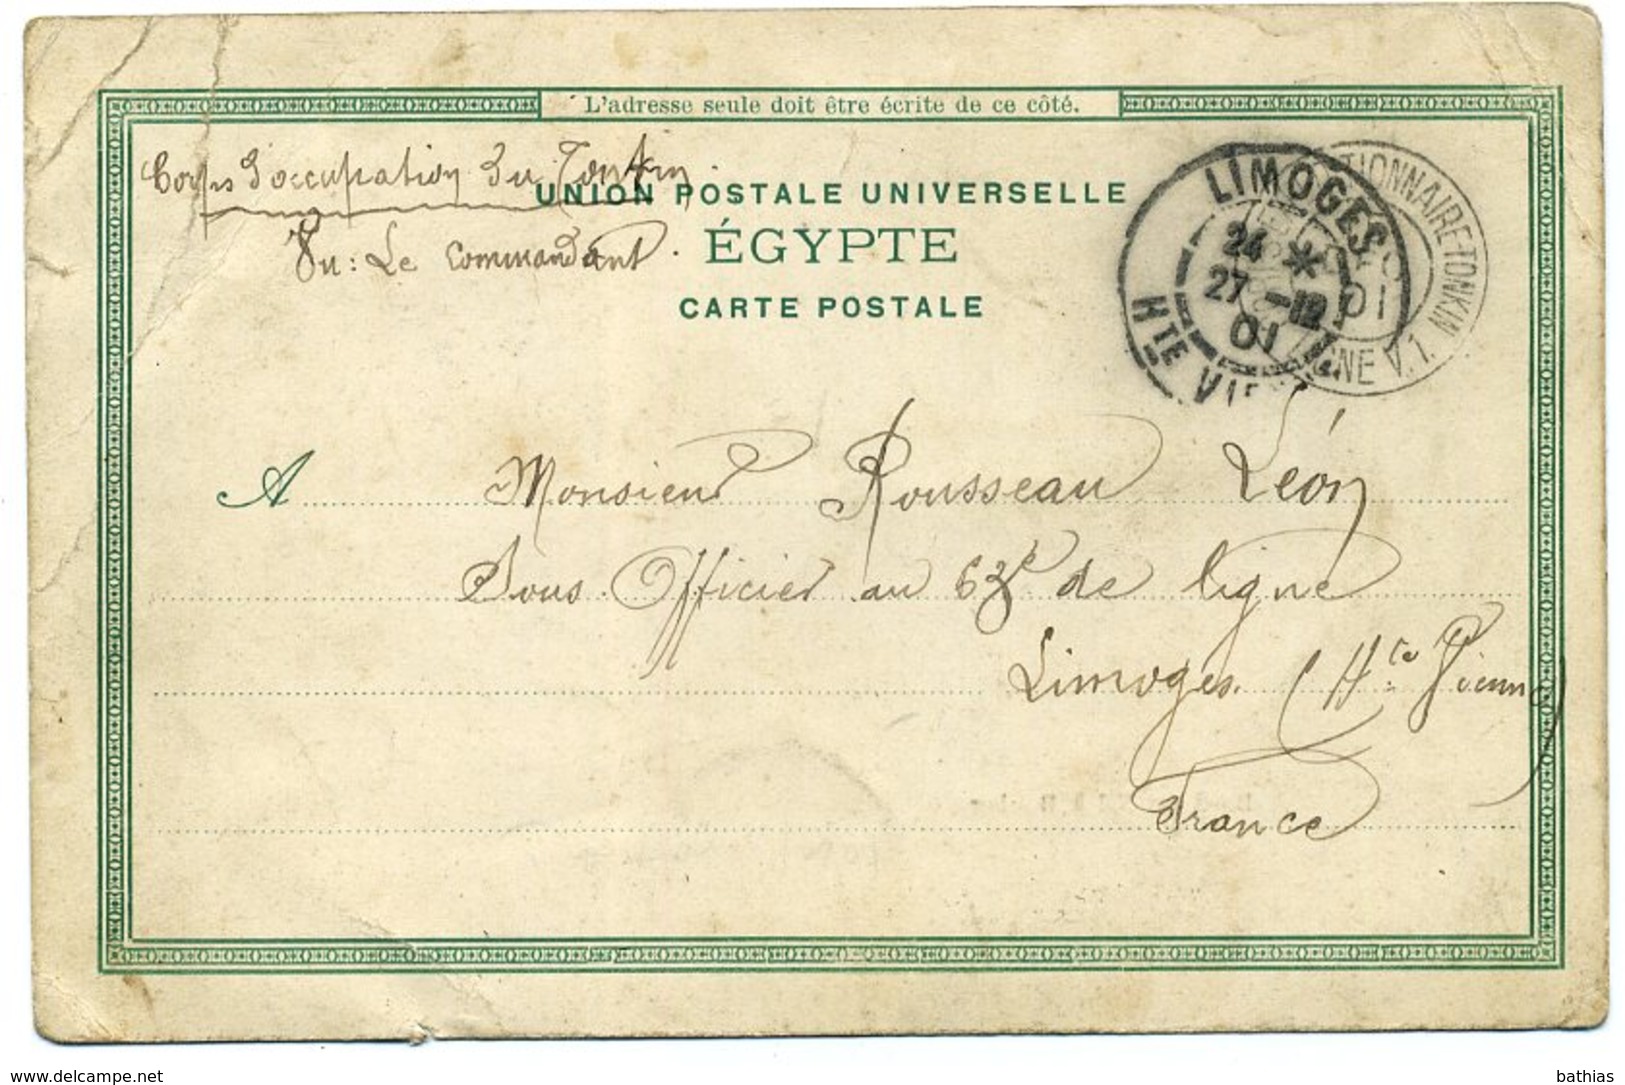 L'adresse seule doit être écrite de ce côté.
Corps d'occupation du Tonkin.
UNION POSTALE UNIVERSELLE
Vu : Le Commandant.
ÉGYPTE
CARTE POSTALE
LIMOGES
24 *
27 -12
01
HTE VIE
TIONNAIRE-TONKIN
01
GNE V. 1.
A Monsieur Rousseau Léon
Sous Officier au 63e de ligne
Limoges. (Hte Vienne)
France
www.delcampe.net
bathias